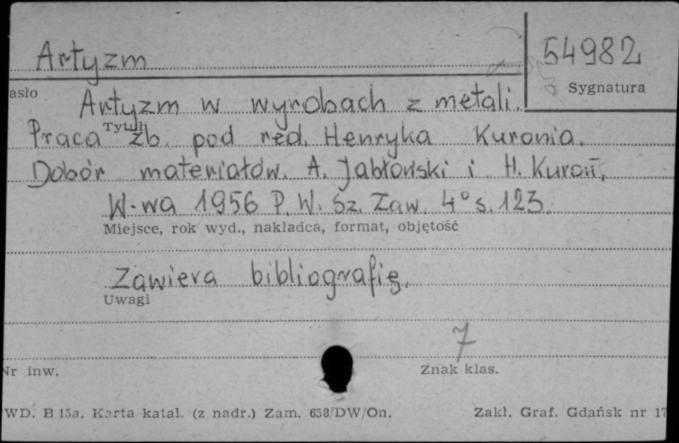 Artyzm
54982
asło
Sygnatura
Artyzm w wyrobach z metali.
Tytuł
Praca zb. pod red. Henryka Kuronia.
Dobór materiałów. A. Jabłoński i H. Kuroń,
W-wa 1956 P. W. Sz. Zaw. 4° s. 123.
Miejsce, rok wyd., nakładca, format, objętość
Zawiera bibliografię.
Uwagi
7
Nr inw.
Znak klas.
WD. B 15a. Karta katal. (z nadr.) Zam. 658/DW/On.
Zakł. Graf. Gdańsk nr 17